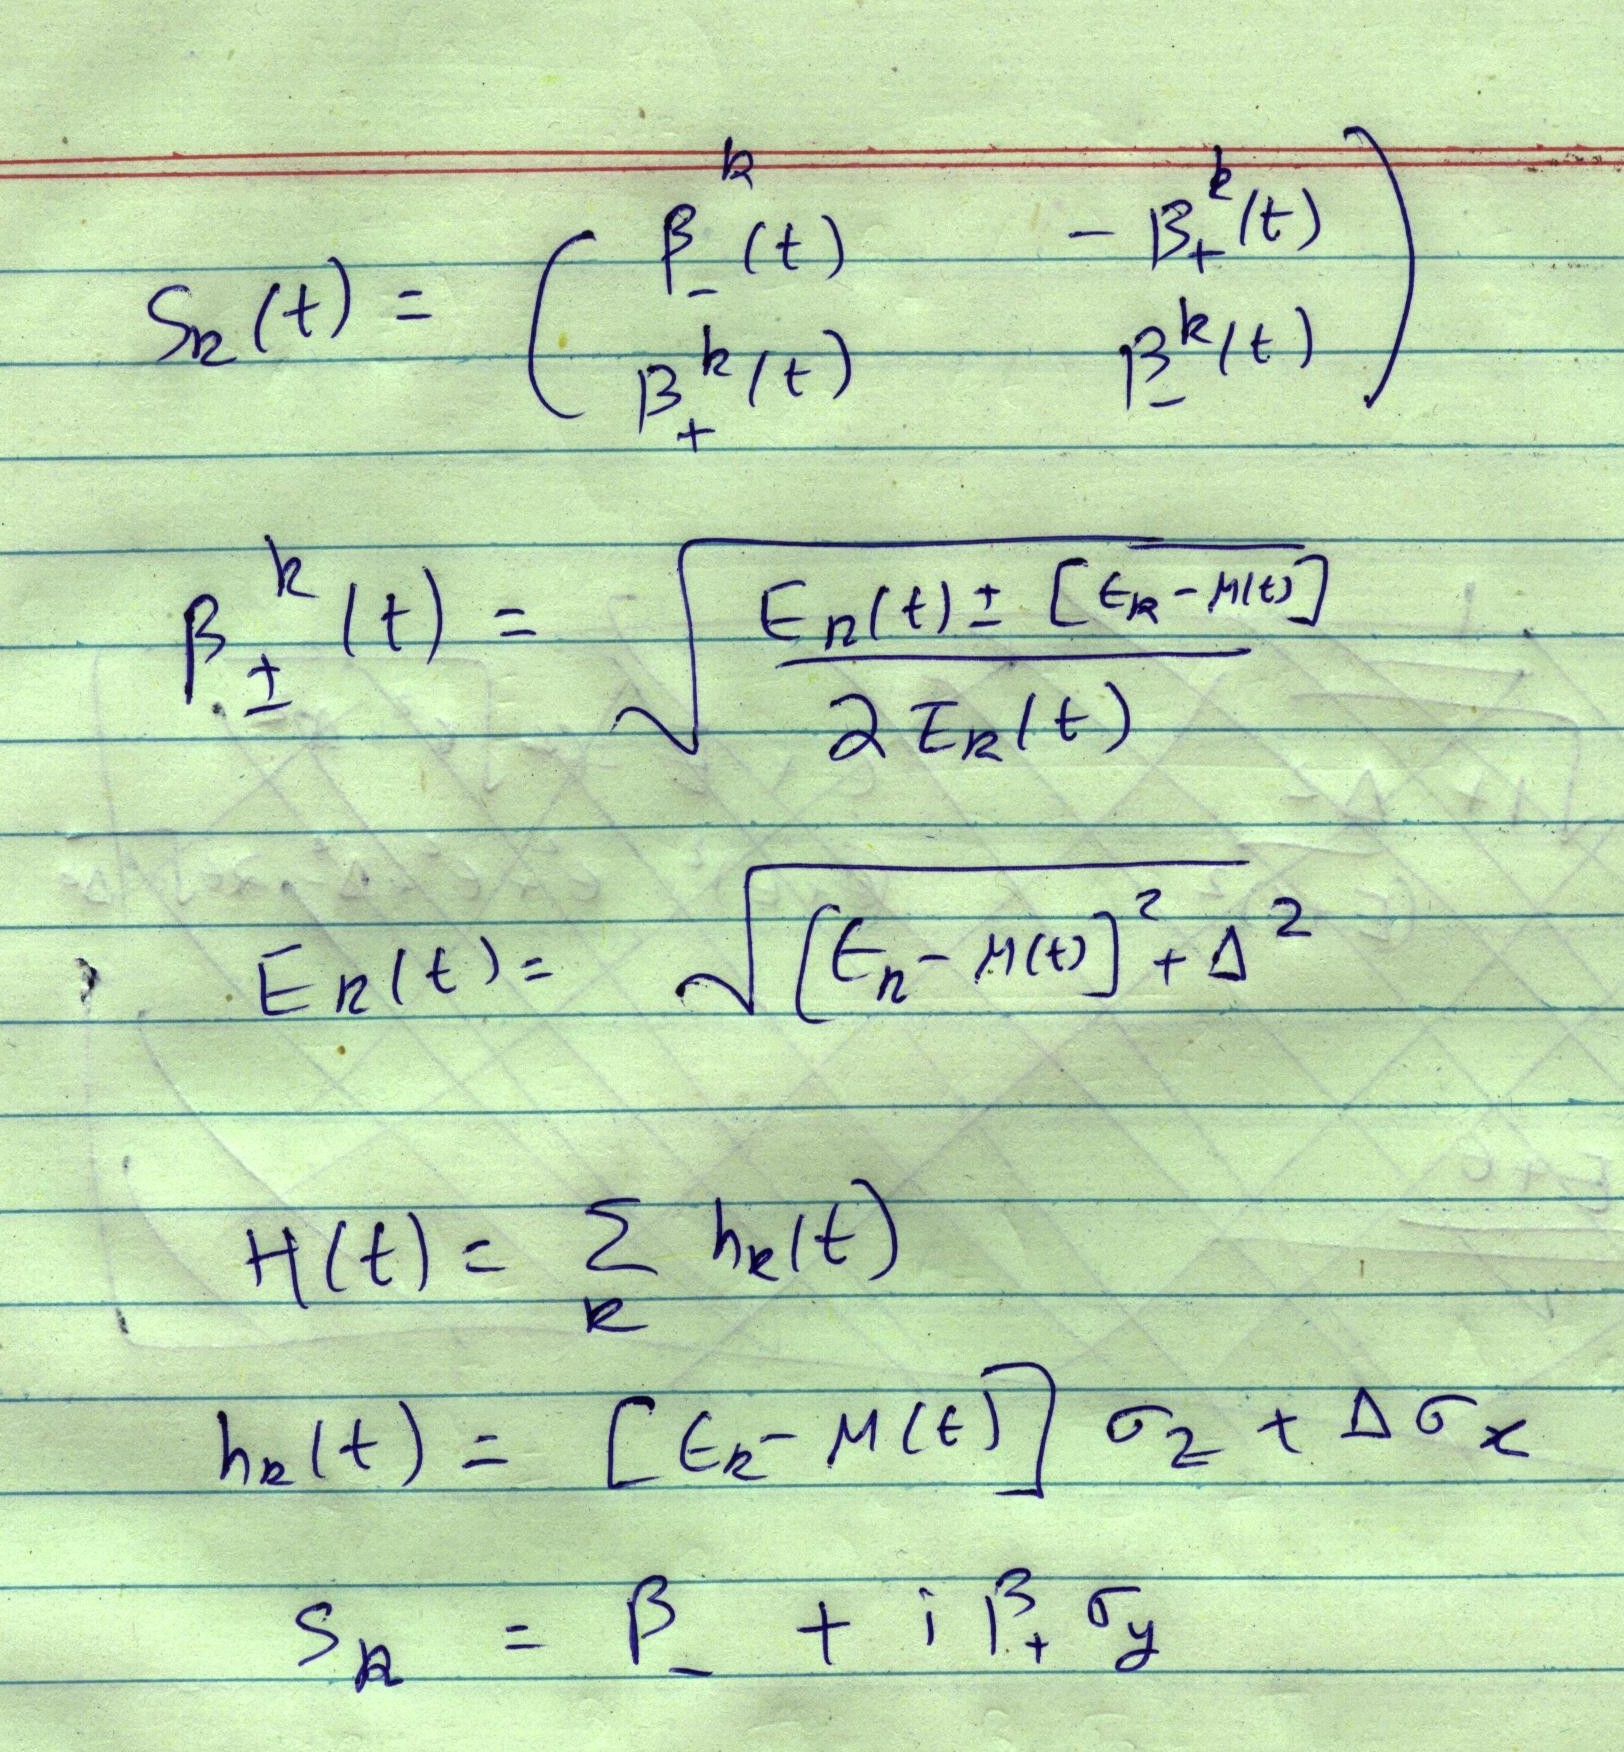 S_k(t) = ( β_-^k(t)   - β_+^k(t)
β_+^k(t)   β_-^k(t) )
β_±^k(t) = √( (E_k(t) ± [ϵ_k - μ(t)]) / (2 E_k(t)) )
E_k(t) = √( [ϵ_k - μ(t)]² + Δ² )
H(t) = Σ_k h_k(t)
h_k(t) = [ϵ_k - μ(t)] σ_z + Δ σ_x
S_k = β_- + i β_+ σ_y